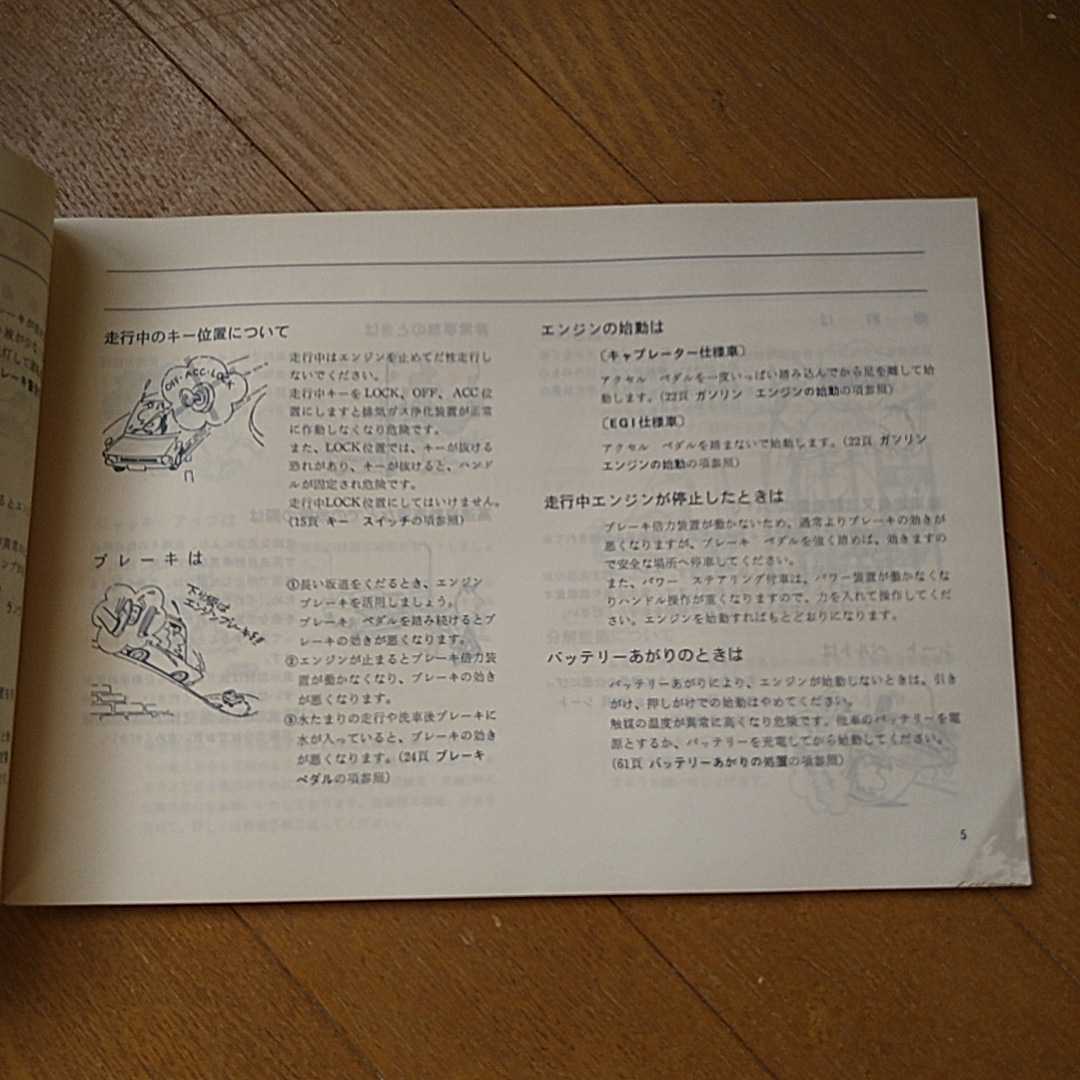 走行中のキー位置について
OFF・ACC・LOCK
走行中はエンジンを止めてだ性走行し
ないでください。
走行中キーをLOCK、OFF、ACC位
置にしますと排気ガス浄化装置が正常
に作動しなくなり危険です。
また、LOCK位置では、キーが抜ける
恐れがあり、キーが抜けると、ハンド
ルが固定され危険です。
走行中LOCK位置にしてはいけません。
(15頁 キー スイッチの項参照)
ブレーキは
下り坂は
エンジンブレーキを!!
①長い坂道をくだるとき、エンジン
ブレーキを活用しましょう。
ブレーキ ペダルを踏み続けるとブ
レーキの効きが悪くなります。
②エンジンが止まるとブレーキ倍力装
置が働かなくなり、ブレーキの効き
が悪くなります。
③水たまりの走行や洗車後ブレーキに
水が入っていると、ブレーキの効き
が悪くなります。(24頁 ブレーキ
ペダルの項参照)
エンジンの始動は
〔キャブレーター仕様車〕
アクセル ペダルを一度いっぱい踏み込んでから足を離して始
動します。(22頁 ガソリン エンジンの始動の項参照)
〔EGI仕様車〕
アクセル ペダルを踏まないで始動します。(22頁 ガソリン
エンジンの始動の項参照)
走行中エンジンが停止したときは
ブレーキ倍力装置が働かないため、通常よりブレーキの効きが
悪くなりますが、ブレーキ ペダルを強く踏めば、効きますの
で安全な場所へ停車してください。
また、パワー ステアリング付車は、パワー装置が働かなくな
りハンドル操作が重くなりますので、力を入れて操作してくだ
さい。エンジンを始動すればもとどおりになります。
バッテリーあがりのときは
バッテリーあがりにより、エンジンが始動しないときは、引き
がけ、押しがけでの始動はやめてください。
触媒の温度が異常に高くなり危険です。他車のバッテリーを電
源とするか、バッテリーを充電してから始動してください。
(61頁 バッテリーあがりの処置の項参照)
5